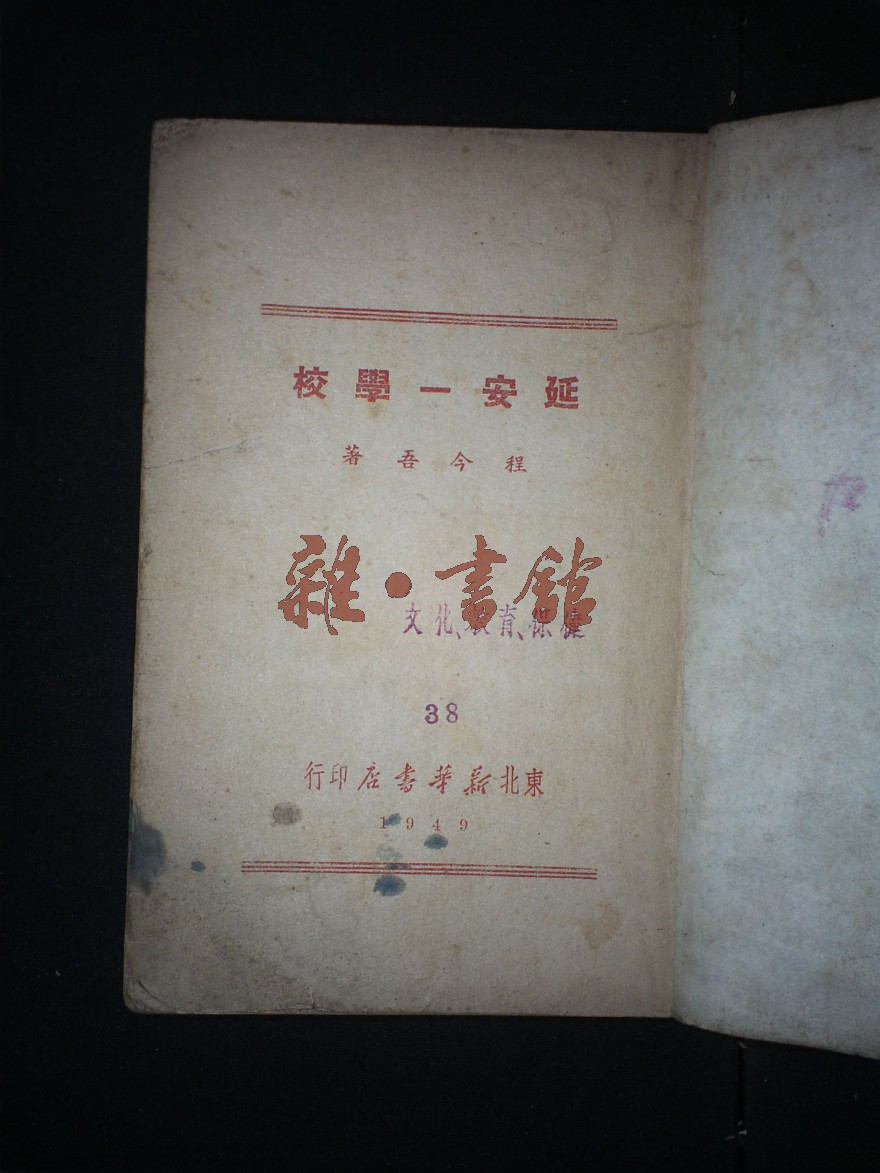 延安一學校
程今吾著
雜·書館
文化、教育、保健
38
東北新華書店印行
1949